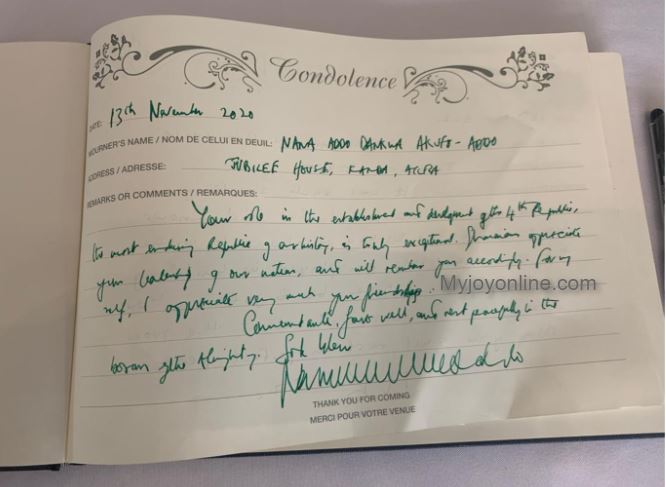 Condolence
DATE: 13th November 2020
MOURNER'S NAME / NOM DE CELUI EN DEUIL: NANA ADDO DANKWA AKUFO-ADDO
ADDRESS / ADRESSE: JUBILEE HOUSE, KANDA, ACCRA
REMARKS OR COMMENTS / REMARQUES:
Your role in the and of the 4th Republic,
the most enduring Republic of our history, is truly exceptional. appreciate
your of our nation, and will remember you accordingly. For my
self, I appreciate very much your friendship.
Myjoyonline.com
fare well, and rest peacefully in the
bosom of the Almighty.
THANK YOU FOR COMING
MERCI POUR VOTRE VENUE